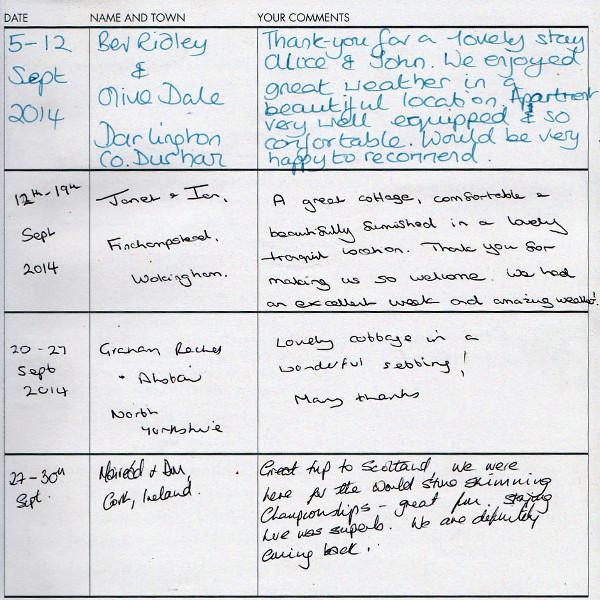 DATE NAME AND TOWN YOUR COMMENTS
5-12
Sept
2014
Bev Ridley
&
Olive Dale
Darlington
Co. Durham
Thank-you for a lovely stay
Alice & John. We enjoyed
great weather in a
beautiful location. Apartment
very well equipped & so
comfortable. Would be very
happy to recommend.
12th-19th
Sept
2014
Janet & Ian,
Finchampstead,
Wokingham.
A great cottage, comfortable &
beautifully furnished in a lovely
tranquil location. Thank you for
making us so welcome. We had
an excellent week and amazing weather!
20-27
Sept
2014
Graham
+
North
Yorkshire
Lovely cottage in a
wonderful setting!
Many thanks
27-30th
Sept.
Mairéad & Dan,
Cork, Ireland.
Great trip to Scotland, we were
here for the World stone skimming
Championships - great fun. staying
here was superb. We are definitely
coming back.